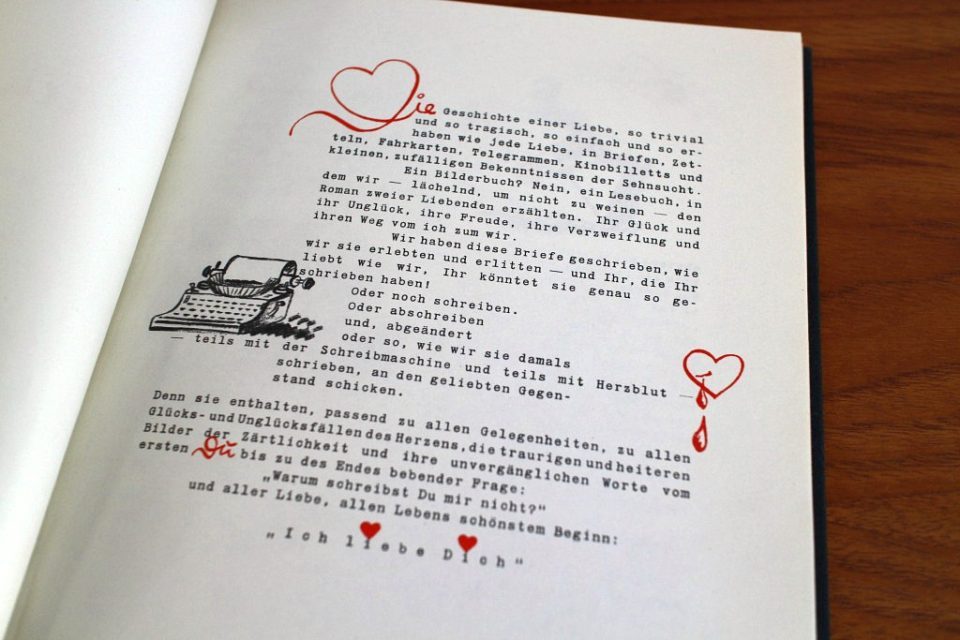 Die Geschichte einer Liebe, so trivial
und so tragisch, so einfach und so er-
haben wie jede Liebe, in Briefen, Zet-
teln, Fahrkarten, Telegrammen, Kinobilletts und
kleinen, zufälligen Bekenntnissen der Sehnsucht.
Ein Bilderbuch? Nein, ein Lesebuch, in
dem wir — lächelnd, um nicht zu weinen — den
Roman zweier Liebenden erzählten. Ihr Glück und
ihr Unglück, ihre Freude, ihre Verzweiflung und
ihren Weg vom ich zum wir.
Wir haben diese Briefe geschrieben, wie
wir sie erlebten und erlitten — und Ihr, die Ihr
liebt wie wir, Ihr könntet sie genau so ge-
schrieben haben!
Oder noch schreiben.
Oder abschreiben
und, abgeändert
oder so, wie wir sie damals
— teils mit der Schreibmaschine und teils mit Herzblut —
schrieben, an den geliebten Gegen-
stand schicken.
Denn sie enthalten, passend zu allen Gelegenheiten, zu allen
Glücks- und Unglücksfällen des Herzens, die traurigen und heiteren
Bilder der Zärtlichkeit und ihre unvergänglichen Worte vom
ersten Du bis zu des Endes bebender Frage:
„Warum schreibst Du mir nicht?"
und aller Liebe, allen Lebens schönstem Beginn:
„Ich liebe Dich"